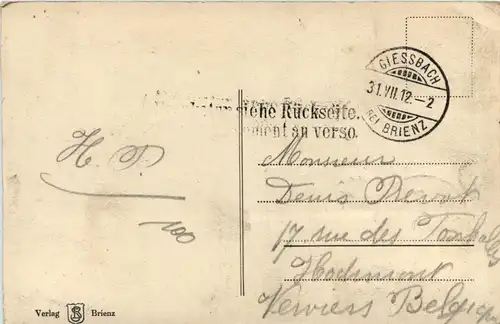 GIESSBACH
31.VII.12.–2
BEI BRIENZ
siehe Rückseite.
au verso.
H. P.
100
Monsieur
Denis
17, rue des
Hodimont
Verviers Belgique
Verlag Brienz